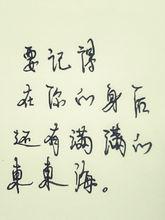 要記得
在你的身后
还有满满的
東東海。